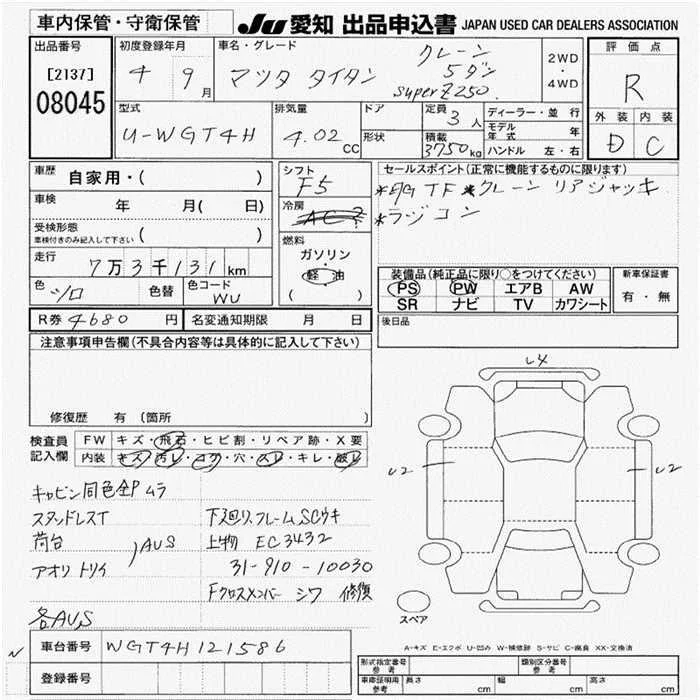 車内保管・守衛保管 JU 愛知 出品申込書 JAPAN USED CAR DEALERS ASSOCIATION
出品番号 初度登録年月 車名・グレード 評価点
[2137] 4 9月 マツダ タイタン クレーン 5ダン superZ250. 2WD・4WD R
08045
型式 排気量 ドア 定員 ディーラー・並行 外装 内装
U-WGT4H 4.02CC 形状 3人 モデル年式 年 D C
積載 3750kg ハンドル 左・右
車歴 自家用・( ) シフト F5 セールスポイント(正常に機能するものに限ります)
車検 年 月( 日) 冷房 AC *E/G TF *クレーン リアジャッキ
*ラジコン
受検形態 ( )
車検付きのみ記入して下さい
燃料 ガソリン
走行 7万3千131km 軽油 ( )
装備品(純正品に限り○をつけてください) 新車保証書
色 シロ 色替 色コード WU PS PW エアB AW 有・無
SR ナビ TV カワシート
R券 4680円 名変通知期限 月 日 後日品
注意事項申告欄(不具合内容等は具体的に記入して下さい)
修復歴 有(箇所
検査員記入欄 FW キズ・飛石・ヒビ割・リペア跡・X要
内装 キズ・汚レ・コゲ・穴・スレ・キレ・破レ
U4
U2 U2
キャビン同色全P ムラ
スタンドレスT 下廻リ.フレームSCウキ
荷台 AUS 上物 EC3432
アオリ トリイ 31-910-10030
Fクロスメンバー シワ 修復
各AUS
スペア
A-キズ E-エクボ U-凹み W-補修跡 S-サビ C-腐食 XX-交換済
N 車台番号 WGT4H121586
登録番号
形式指定番号 参考 類別区分番号 参考
車庫証明用 参考 長さ cm 幅 cm 高さ cm